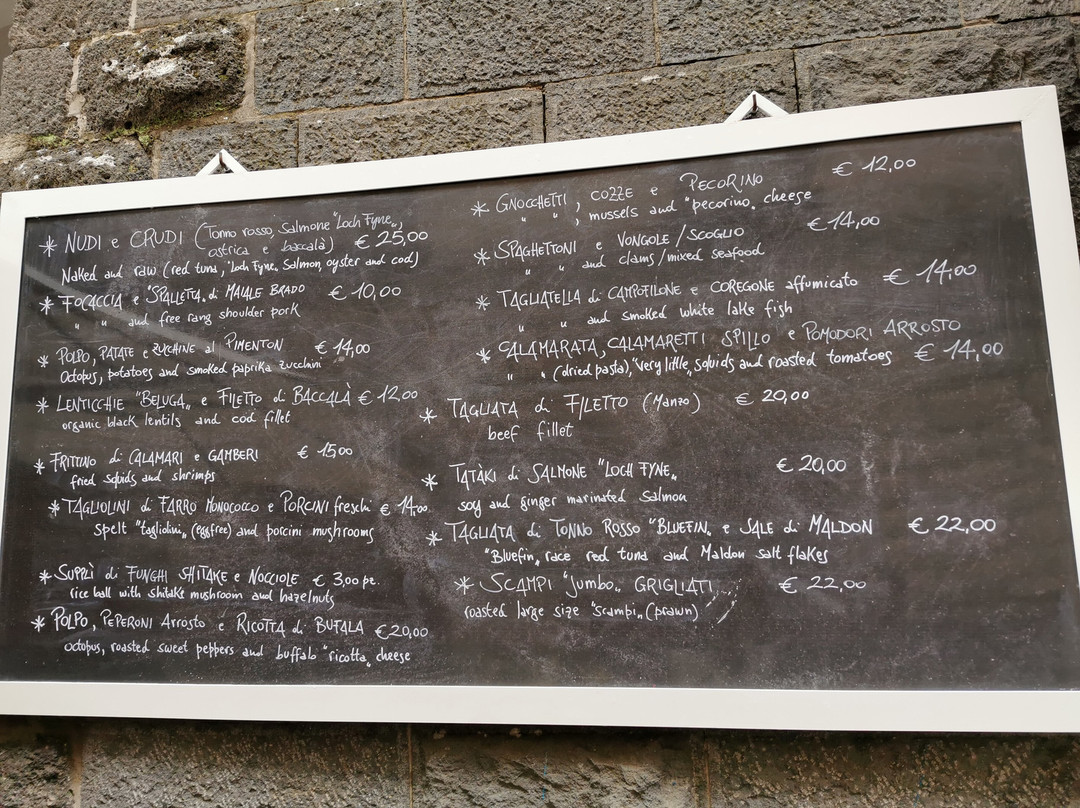 * NUDI e CRUDI (Tonno rosso, Salmone "Loch Fyne„,
ostrica e baccalà) € 25,00
Naked and raw (red tuna, "Loch Fyne„ Salmon, oyster and cod)
* FOCACCIA e "SPALLETTA„ di MAIALE BRADO € 10,00
" " and free rang shoulder pork
* POLPO, PATATE e ZUCCHINE al PIMENTON € 14,00
Octobus, potatoes and smoked paprika zucchini
* LENTICCHIE "BELUGA„ e FILETTO di BACCALÀ € 12,00
organic black lentils and cod fillet
* FRITTINO di CALAMARI e GAMBERI € 15,00
fried squids and shrimps
* TAGLIOLINI di FARRO MONOCOCCO e PORCINI freschi € 14,00
spelt "tagliolini„ (eggfree) and porcini mushrooms
* SUPPLÌ di FUNGHI SHITAKE e NOCCIOLE € 3,00 pz.
rice ball with shitake mushroom and hazelnuts
* POLPO, PEPERONI Arrosto e RICOTTA di BUFALA € 20,00
octobus, roasted sweet peppers and buffalo "ricotta„ cheese
* GNOCCHETTI, COZZE e PECORINO € 12,00
" ", mussels and "pecorino„ cheese
* SPAGHETTONI e VONGOLE/SCOGLIO € 14,00
" " and clams/mixed seafood
* TAGLIATELLA di CAMPOFILONE e COREGONE affumicato € 14,00
" " and smoked white lake fish
* CALAMARATA, CALAMARETTI SPILLO e POMODORI ARROSTO
" " (dried pasta), "very little„ squids and roasted tomatoes € 14,00
* TAGLIATA di FILETTO (Manzo) € 20,00
beef fillet
* TATÀKI di SALMONE "LOCH FYNE„ € 20,00
soy and ginger marinated salmon
* TAGLIATA di TONNO ROSSO "BLUEFIN„ e SALE di MALDON € 22,00
"Bluefin„ race red tuna and Maldon salt flakes
* SCAMPI "Jumbo„ GRIGLIATI € 22,00
roasted large size "scampi„ (prawn)